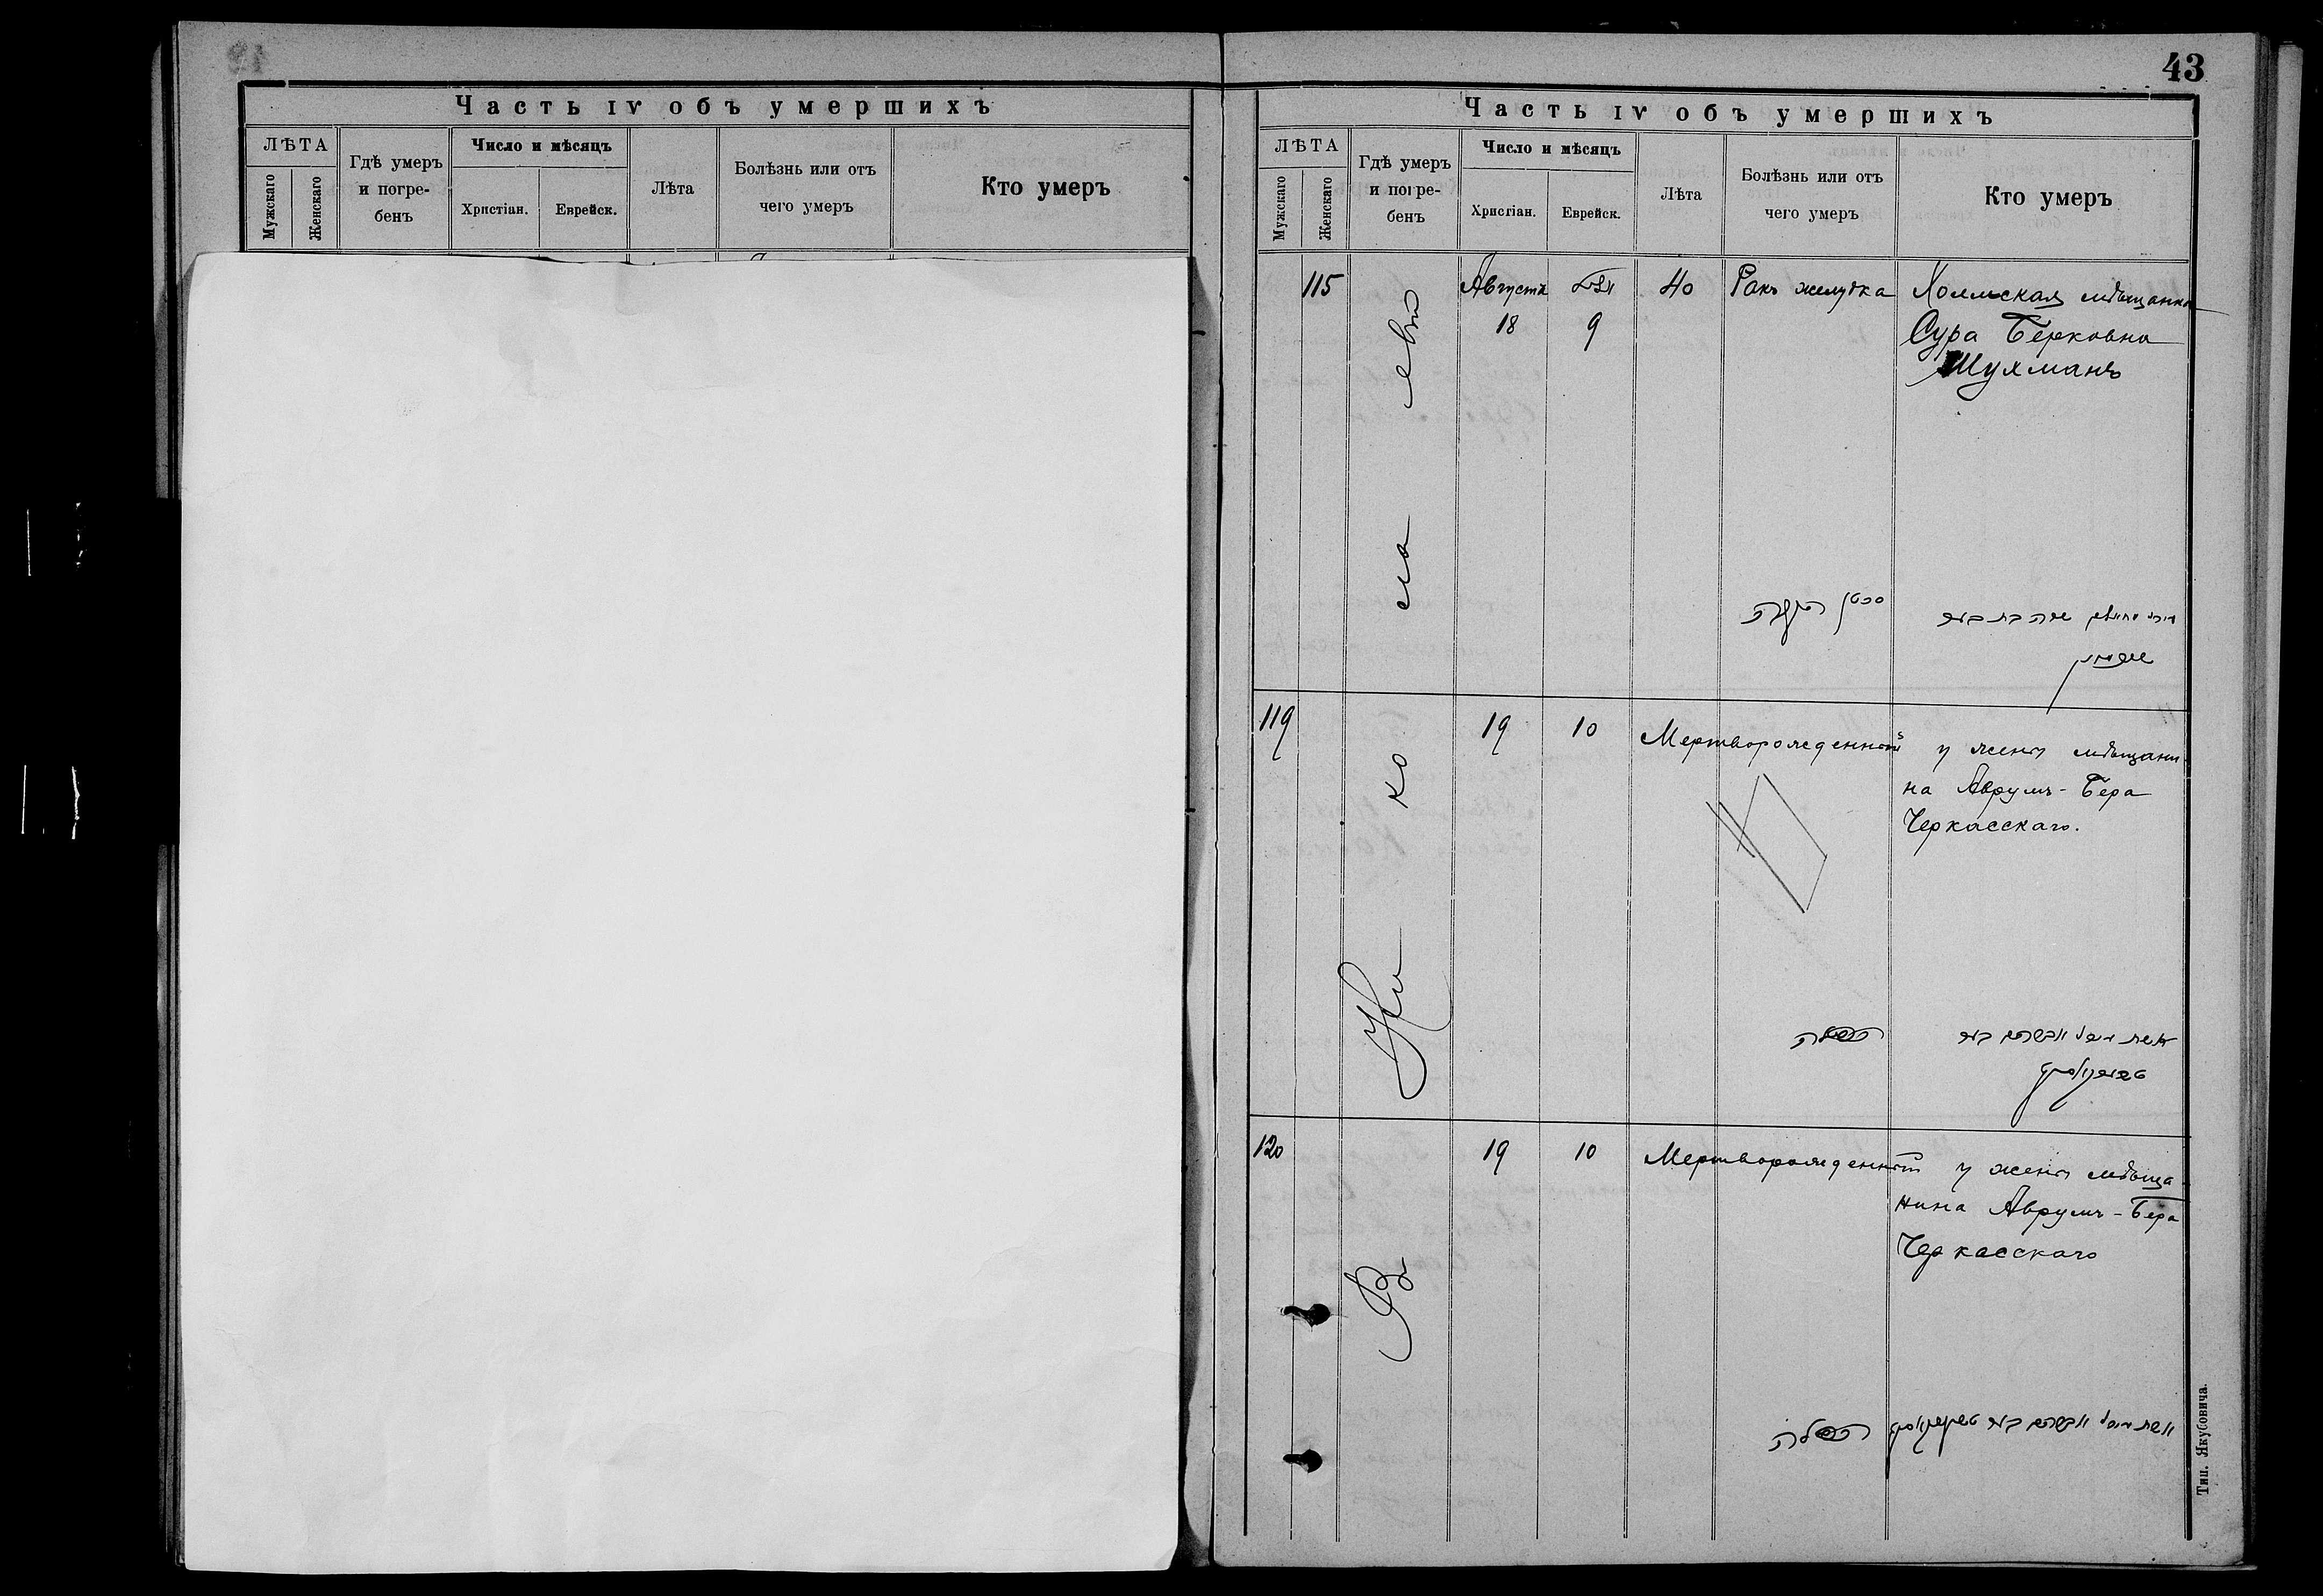 43
Часть IV объ умершихъ
ЛѢТА
Мужскаго
Женскаго
Гдѣ умеръ
и погре-
бенъ
Число и мѣсяцъ
Христіан.
Еврейск.
Лѣта
Болѣзнь или отъ
чего умеръ
Кто умеръ
Часть IV объ умершихъ
ЛѢТА
Мужскаго
Женскаго
Гдѣ умеръ
и погре-
бенъ
Число и мѣсяцъ
Христіан.
Еврейск.
Лѣта
Болѣзнь или отъ
чего умеръ
Кто умеръ
115
Августа
18
9
40
Ракъ желудка
мѣщанка
Сура Берковна
Шухманъ
119
19
10
Мертворожденный
у жены мѣщани
на Аврумъ-Бера
Черкасскаго.
120
19
10
Мертворожденный
у жены мѣща
нина Аврумъ-Бера
Черкасскаго
Въ
Нико
ла
евѣ
Тип. Якубовича.